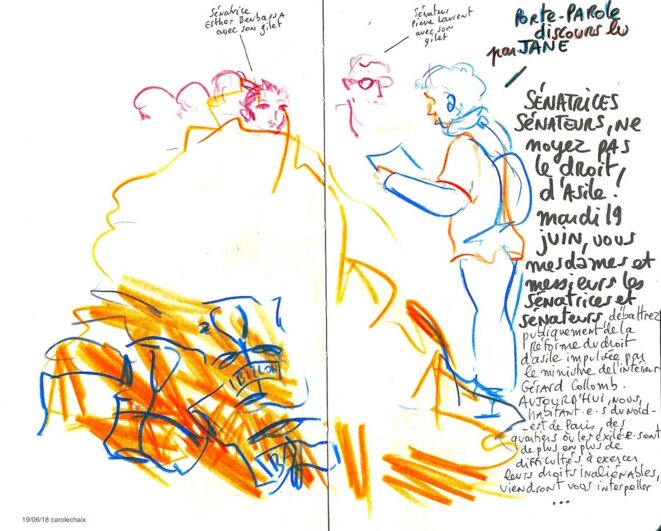 Sénatrice
Esther Benbassa
avec son gilet
Sénateur
Pierre Laurent
avec son
gilet
PORTE-PAROLE
discours lu
par JANE
SÉNATRICES
SÉNATEURS, NE
NOYEZ PAS
le droit,
d'Asile.
mardi 19
JUIN, vous
mesdames et
messieurs les
Sénatrices et
sénateurs, débattrez
publiquement de la
Réforme du droit
d'asile impulsée par
le ministre de l'intérieur
Gérard Collomb.
AUJOURD'HUI, NOUS,
habitant·e·s du Nord-
est de Paris, des
quartiers où les exilé·e·s ont
de plus en plus de
difficultés à exercer
leurs droits inaliénables,
viendront vous interpeller
...
19/06/18 carolechaix